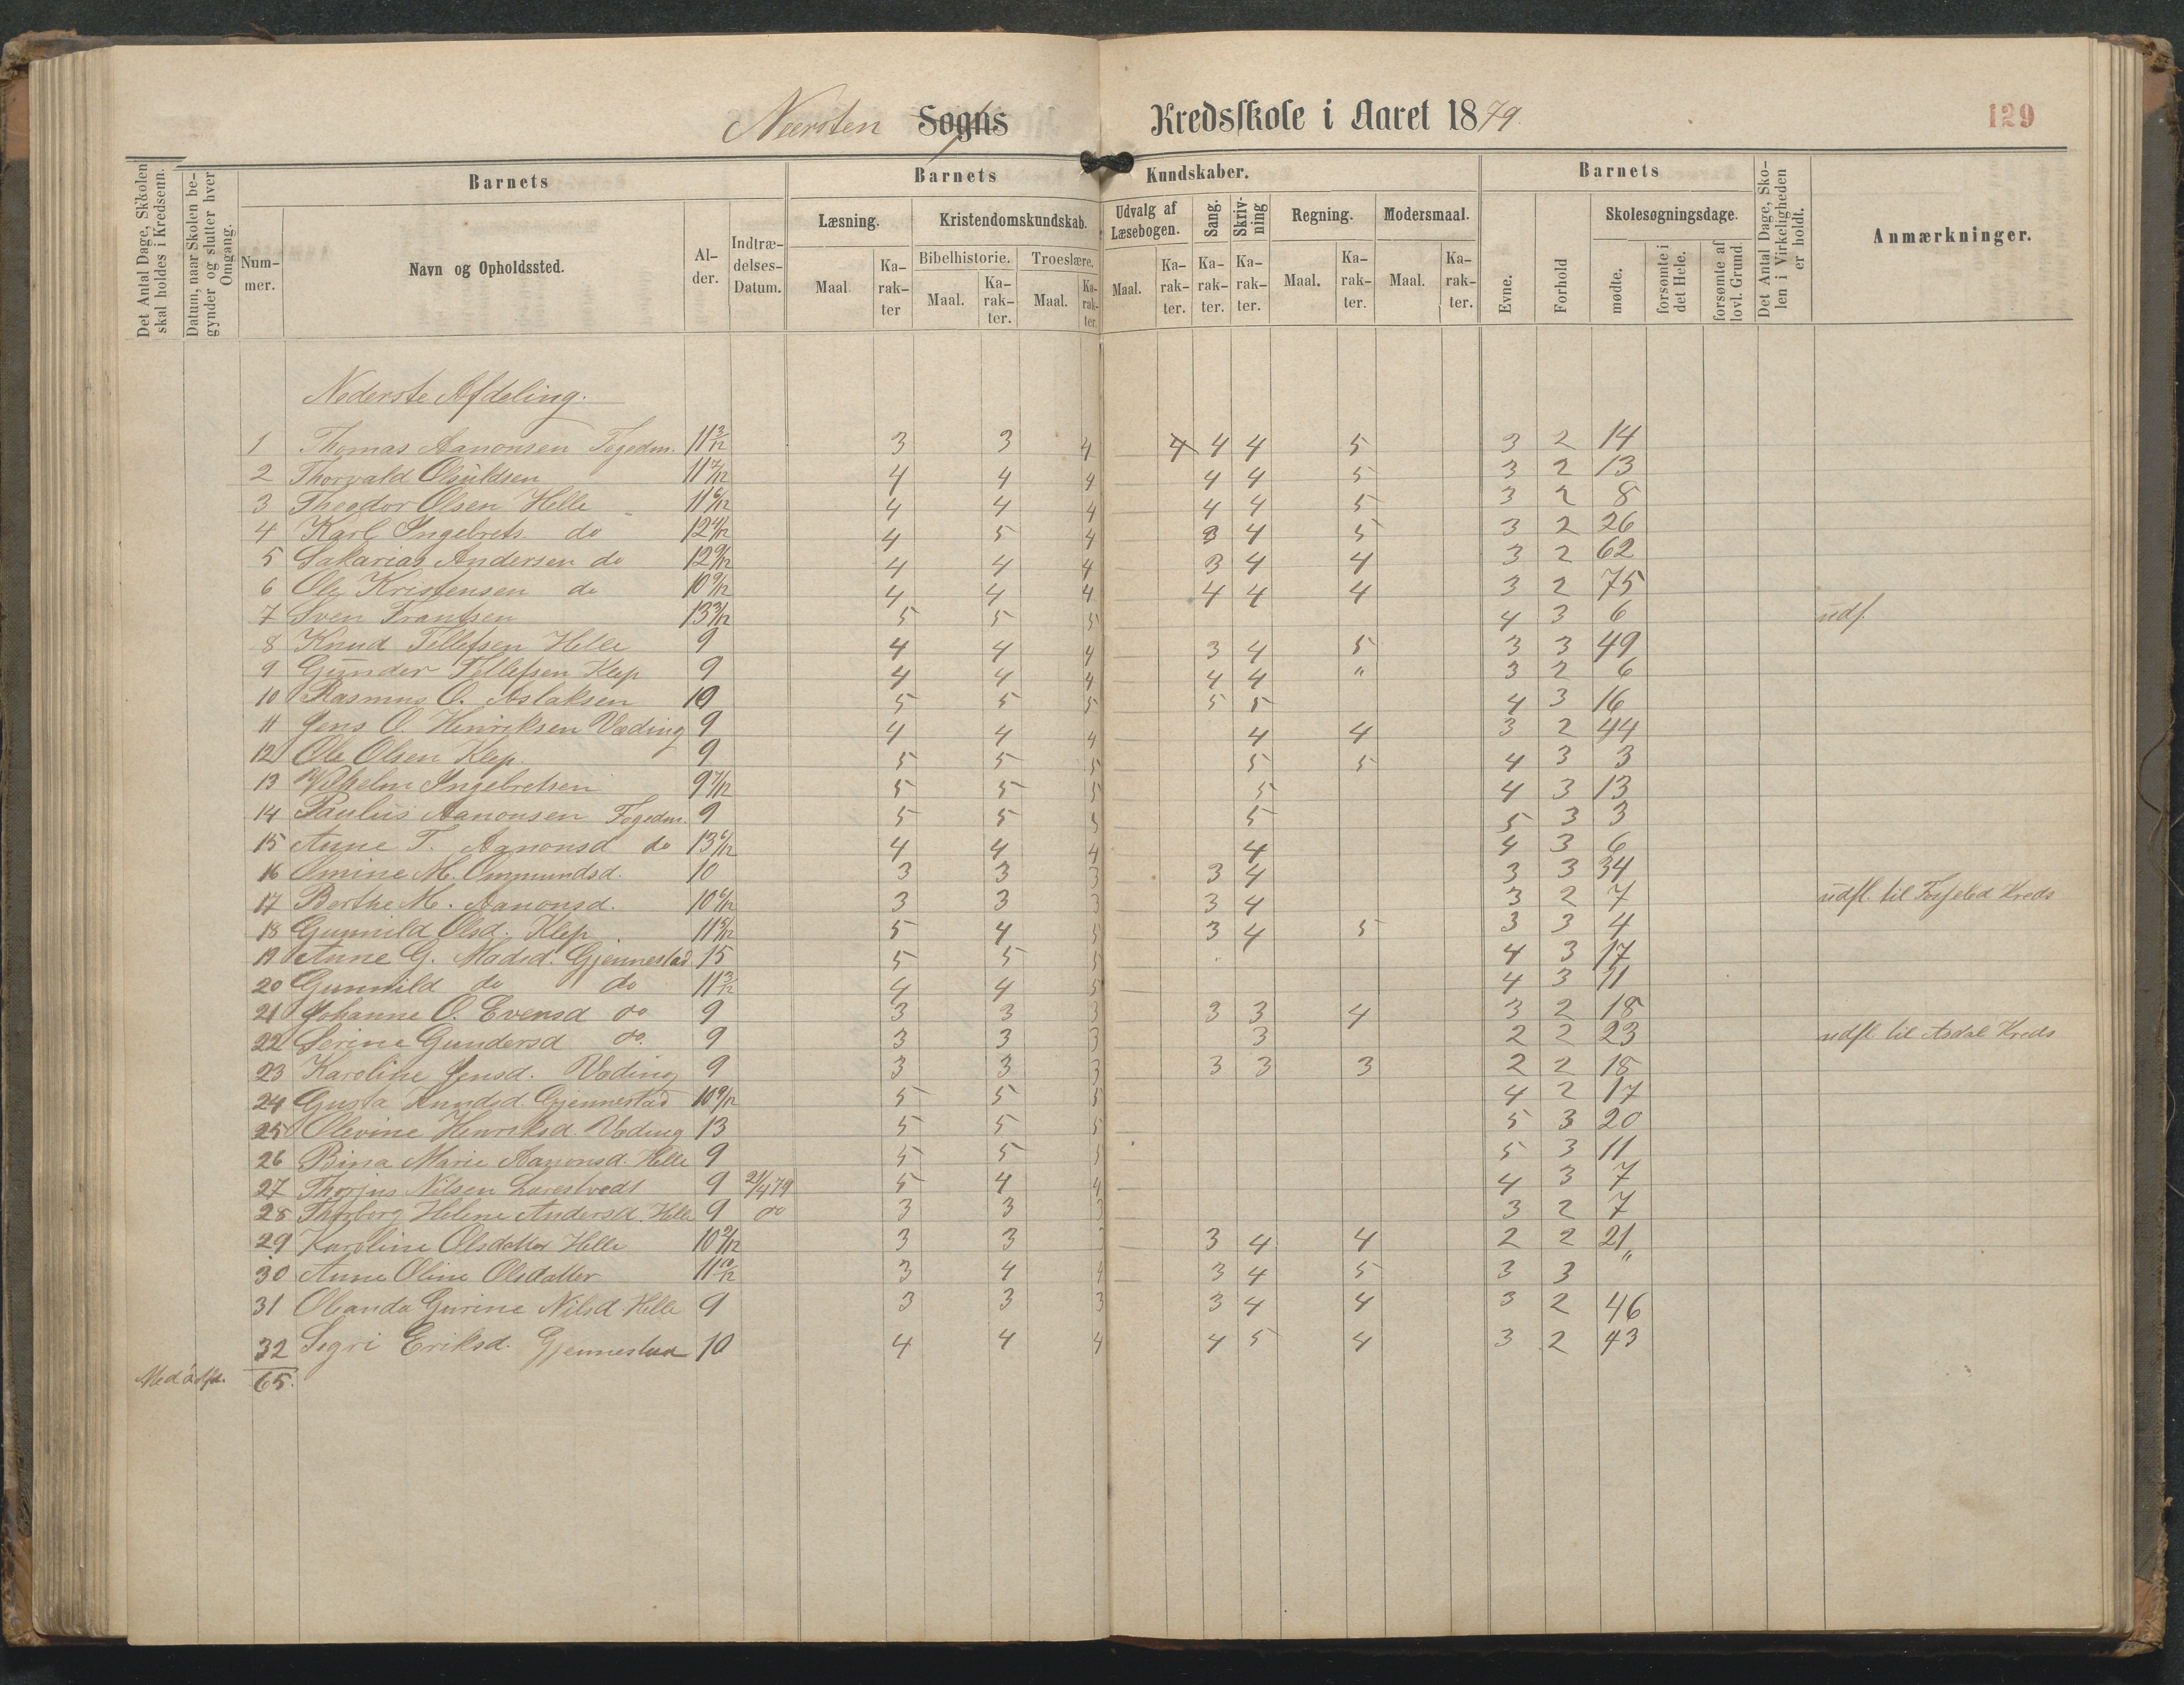 Neersten Sogns Kredsskole i Aaret 1879.
129
Det Antal Dage, Skkolen skal holdes i Kredsenn.
Datum, naar Skolen begynder og slutter hver Omgang.
Barnets
Nummer.
Navn og Opholdssted.
Alder.
Indtrædelses-Datum.
Barnets Kundskaber.
Læsning.
Maal. Karakter
Kristendomskundskab.
Bibelhistorie. Troeslære.
Maal. Karakter. Maal. Karakter.
Udvalg af Læsebogen.
Maal. Karakter.
Sang. Karakter.
Skrivning Karakter.
Regning.
Maal. Karakter.
Modersmaal.
Maal. Karakter.
Barnets
Evne.
Forhold
Skolesøgningsdage.
mødte.
forsømte i det Hele.
forsømte af lovl. Grund
Det Antal Dage, Skolen i Virkeligheden er holdt.
Anmærkninger.
Nederste Afdeling.
1 Thomas Aanonsen Fogedm. 11 3/12 3 3 4 4 4 4 5 3 2 14
2 Thorvald 11 7/12 4 4 4 4 4 5 3 2 13
3 Theodor Olsen Helle 11 6/12 4 4 4 4 4 5 3 2 8
4 Karl Ingebrets. do 12 4/12 4 5 4 3 4 5 3 2 26
5 Sakarias Andersen do 12 9/12 4 4 4 3 4 4 3 2 62
6 Ole Kristensen do 10 9/12 4 4 4 4 4 4 3 2 75
7 Sven Frantsen 13 3/12 5 5 5 4 3 6 udf.
8 Knud Tellefsen Helle 9 4 4 4 3 4 5 3 3 49
9 Gunder Tellefsen Klep 9 4 4 4 4 4 " 3 2 6
10 Rasmus O. Aslaksen 10 5 5 5 5 5 4 3 16
11 Jens O. Henriksen Væding 9 4 4 4 4 4 3 2 44
12 Ole Olsen Klep. 9 5 5 5 5 5 4 3 3
13 Vilhelm Ingebretsen 9 7/12 5 5 5 5 4 3 13
14 Paulus Aanonsen Fogedm. 9 5 5 5 5 5 3 3
15 Anne T. Aanonsd do 13 6/12 4 4 4 4 4 3 6
16 Omine M. Ommundsd. 10 3 3 3 3 4 3 3 34
17 Berthe M. Aanonsd. 10 6/12 3 3 3 3 4 3 2 7 udfl. til Kreds
18 Gunnild Olsd. Klep 11 5/12 5 4 5 3 4 5 3 3 4
19 Anne G. Madsd. Gjennestad 15 5 5 5 4 3 17
20 Gunnild do do 11 3/12 4 4 5 4 3 11
21 Johanne O. Evensd do 9 3 3 3 3 3 4 3 2 18
22 Serine Gundersd do. 9 3 3 3 3 2 2 23 udfl til Asdal Kreds
23 Karoline Jensd. Væding 9 3 3 3 3 3 3 2 2 18
24 Gusta Knudsd. Gjennestad 10 9/12 5 5 5 4 2 17
25 Olevine Henriksd. Væding 13 5 5 5 5 3 20
26 Bina Marie Aanonsd. Helle 9 5 5 5 5 3 11
27 Thorjus Nilsen 9 21/4 79 5 4 4 4 3 7
28 Thorborg Helene Andersd. Helle 9 do 3 3 3 3 2 7
29 Karoline Olsdatter Helle 10 9/12 3 3 3 3 4 4 2 2 21
30 Anne Oline Olsdatter 11 10/12 3 4 4 3 4 5 3 3 "
31 Olanda Gurine Nilsd Helle 9 3 3 3 3 4 4 3 2 46
32 Segri Eriksd. Gjennestad 10 4 4 4 4 5 4 3 2 43
65.